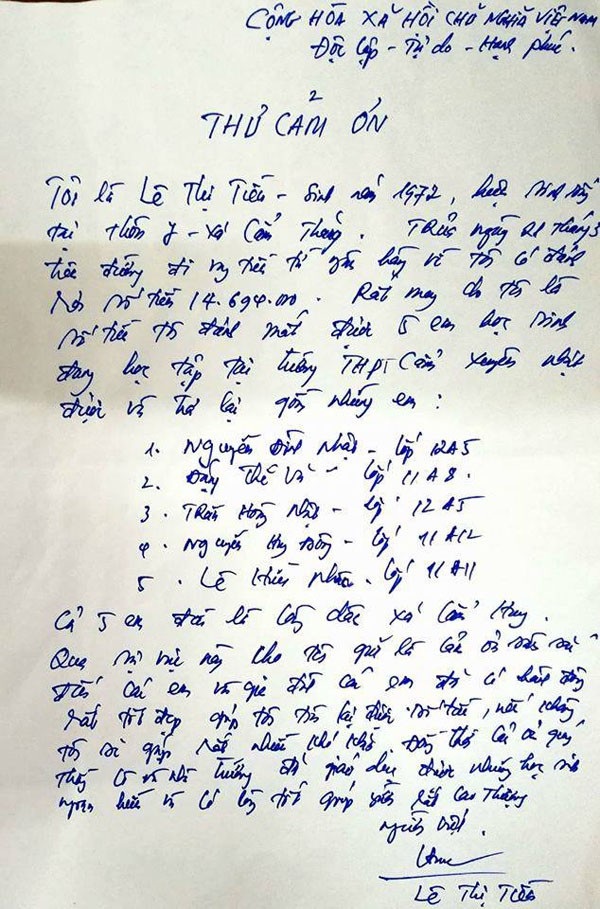 CỘNG HÒA XÃ HỘI CHỦ NGHĨA VIỆT NAM
Độc lập - Tự do - Hạnh phúc.
THƯ CẢM ƠN
Tôi là Lê Thị Tiến - sinh năm 1972, hiện sinh sống
tại thôn 7 - xã Cẩm Thăng. Trưa ngày 21 tháng 3
trên đường đi từ ngân hàng về tôi có đánh
rơi số tiền 14.694.000. Rất may cho tôi là
số tiền tôi đánh mất được 5 em học sinh
đang học tập tại trường THPT Cẩm Xuyên nhặt
được và trả lại gồm những em:
1. Nguyễn Đình Nhật - lớp 12A5
2. Đặng Thế - lớp 11A8.
3. Trần Hoàng Nhật - lớp 12A5
4. Nguyễn Huy Đông - lớp 11A12
5. Lê Hiếu - lớp 11A11
Cả 5 em đều là xã Cẩm Hưng.
Qua sự việc này cho tôi gửi lời cảm ơn sâu sắc
đến các em và gia đình các em đã có hành động
rất tốt đẹp giúp tôi tìm lại được số tiền, nếu không
tôi sẽ gặp rất nhiều khó khăn. Đồng thời cảm ơn quý
thầy cô và nhà trường đã giáo dục được những học sinh
ngoan hiền và có lòng tốt cao thượng
người viết.
Lê Thị Tiến